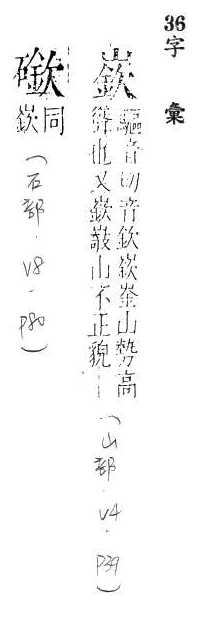 36字彙
嶔 驅音切音欽嶔崟山勢高
聳也又嶔巇山不正貌︱(山部.V4.P39)
礅 同
嶔(石部.V8.P80)